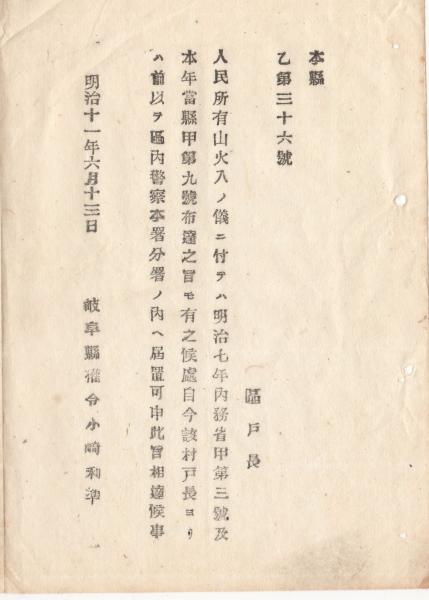 本縣
乙第三十六號
區戸長
人民所有山火入ノ儀ニ付テハ明治七年內務省甲第三號及
本年當縣甲第九號布達之旨モ有之候處自今該村戸長ヨリ
ハ前以テ區內警察本署分署ノ內ヘ屆置可申此旨相達候事
明治十一年六月十三日
岐阜縣權令小崎利準